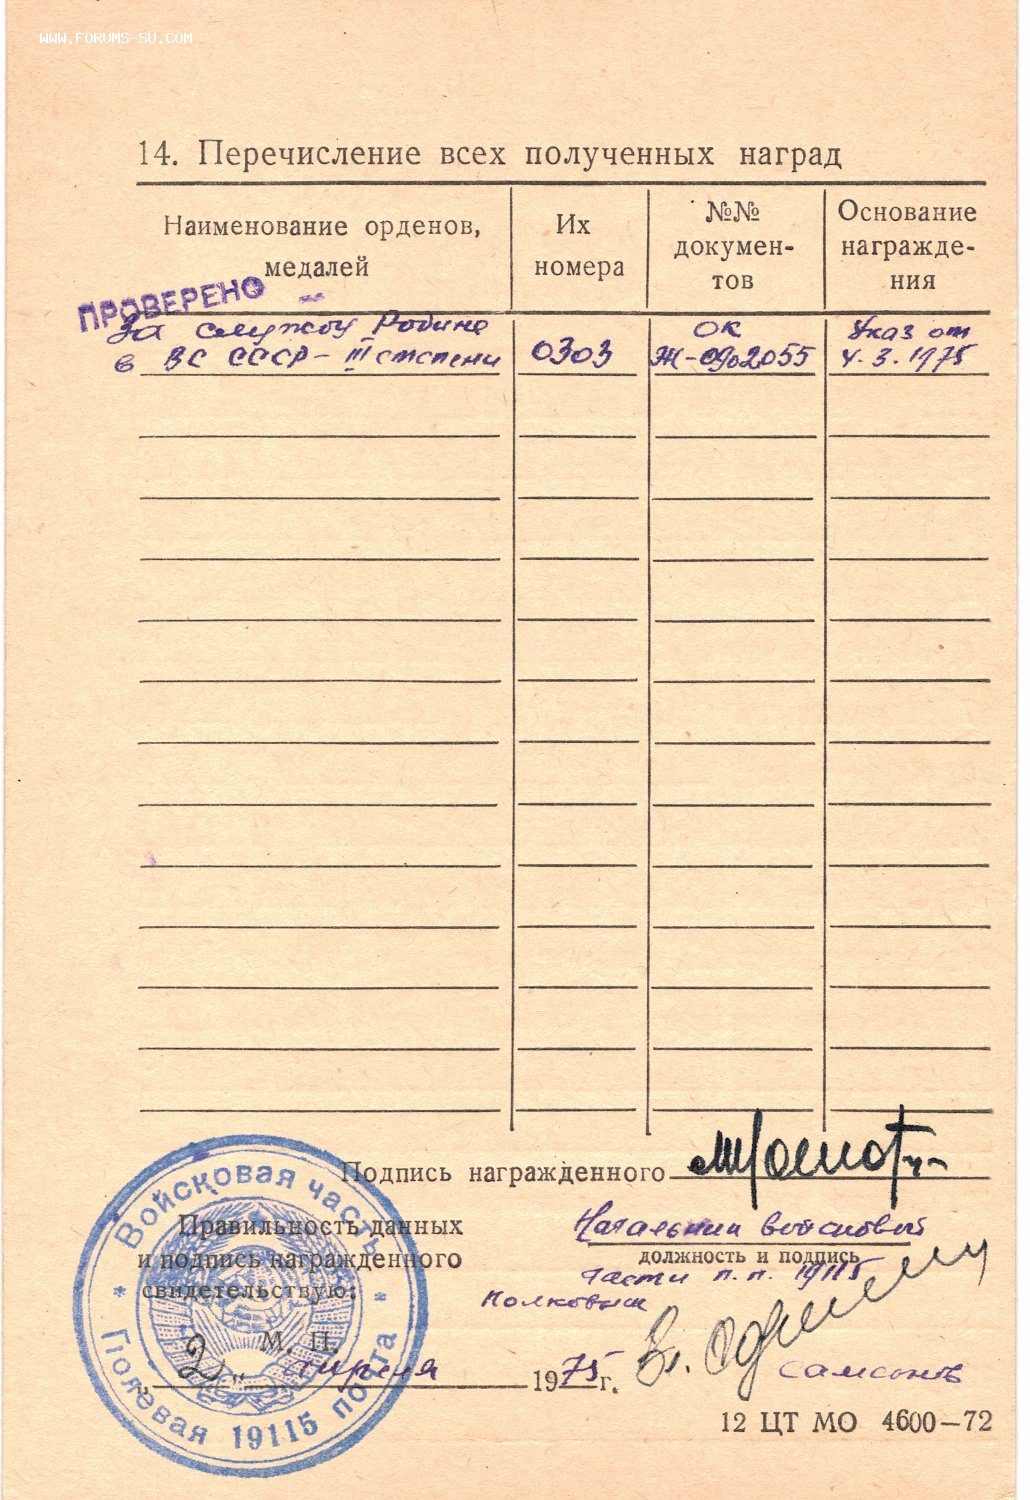 WWW.FORUMS-SU.COM
14. Перечисление всех полученных наград
Наименование орденов, медалей
Их номера
№№ докумен-
тов
Основание
награжде-
ния
ПРОВЕРЕНО
За службу Родине
в ВС СССР - III степени
0303
ОК
Ж-092055
Указ от
4.3.1975
Подпись награжденного
Правильность данных
и подпись награжденного
свидетельствую:
Начальник войсковой
должность и подпись
части п.п. 19115
полковник
Самсонов
М. П.
„2" апреля 1975 г.
Войсковая часть
Полевая почта
19115
12 ЦТ МО 4600—72